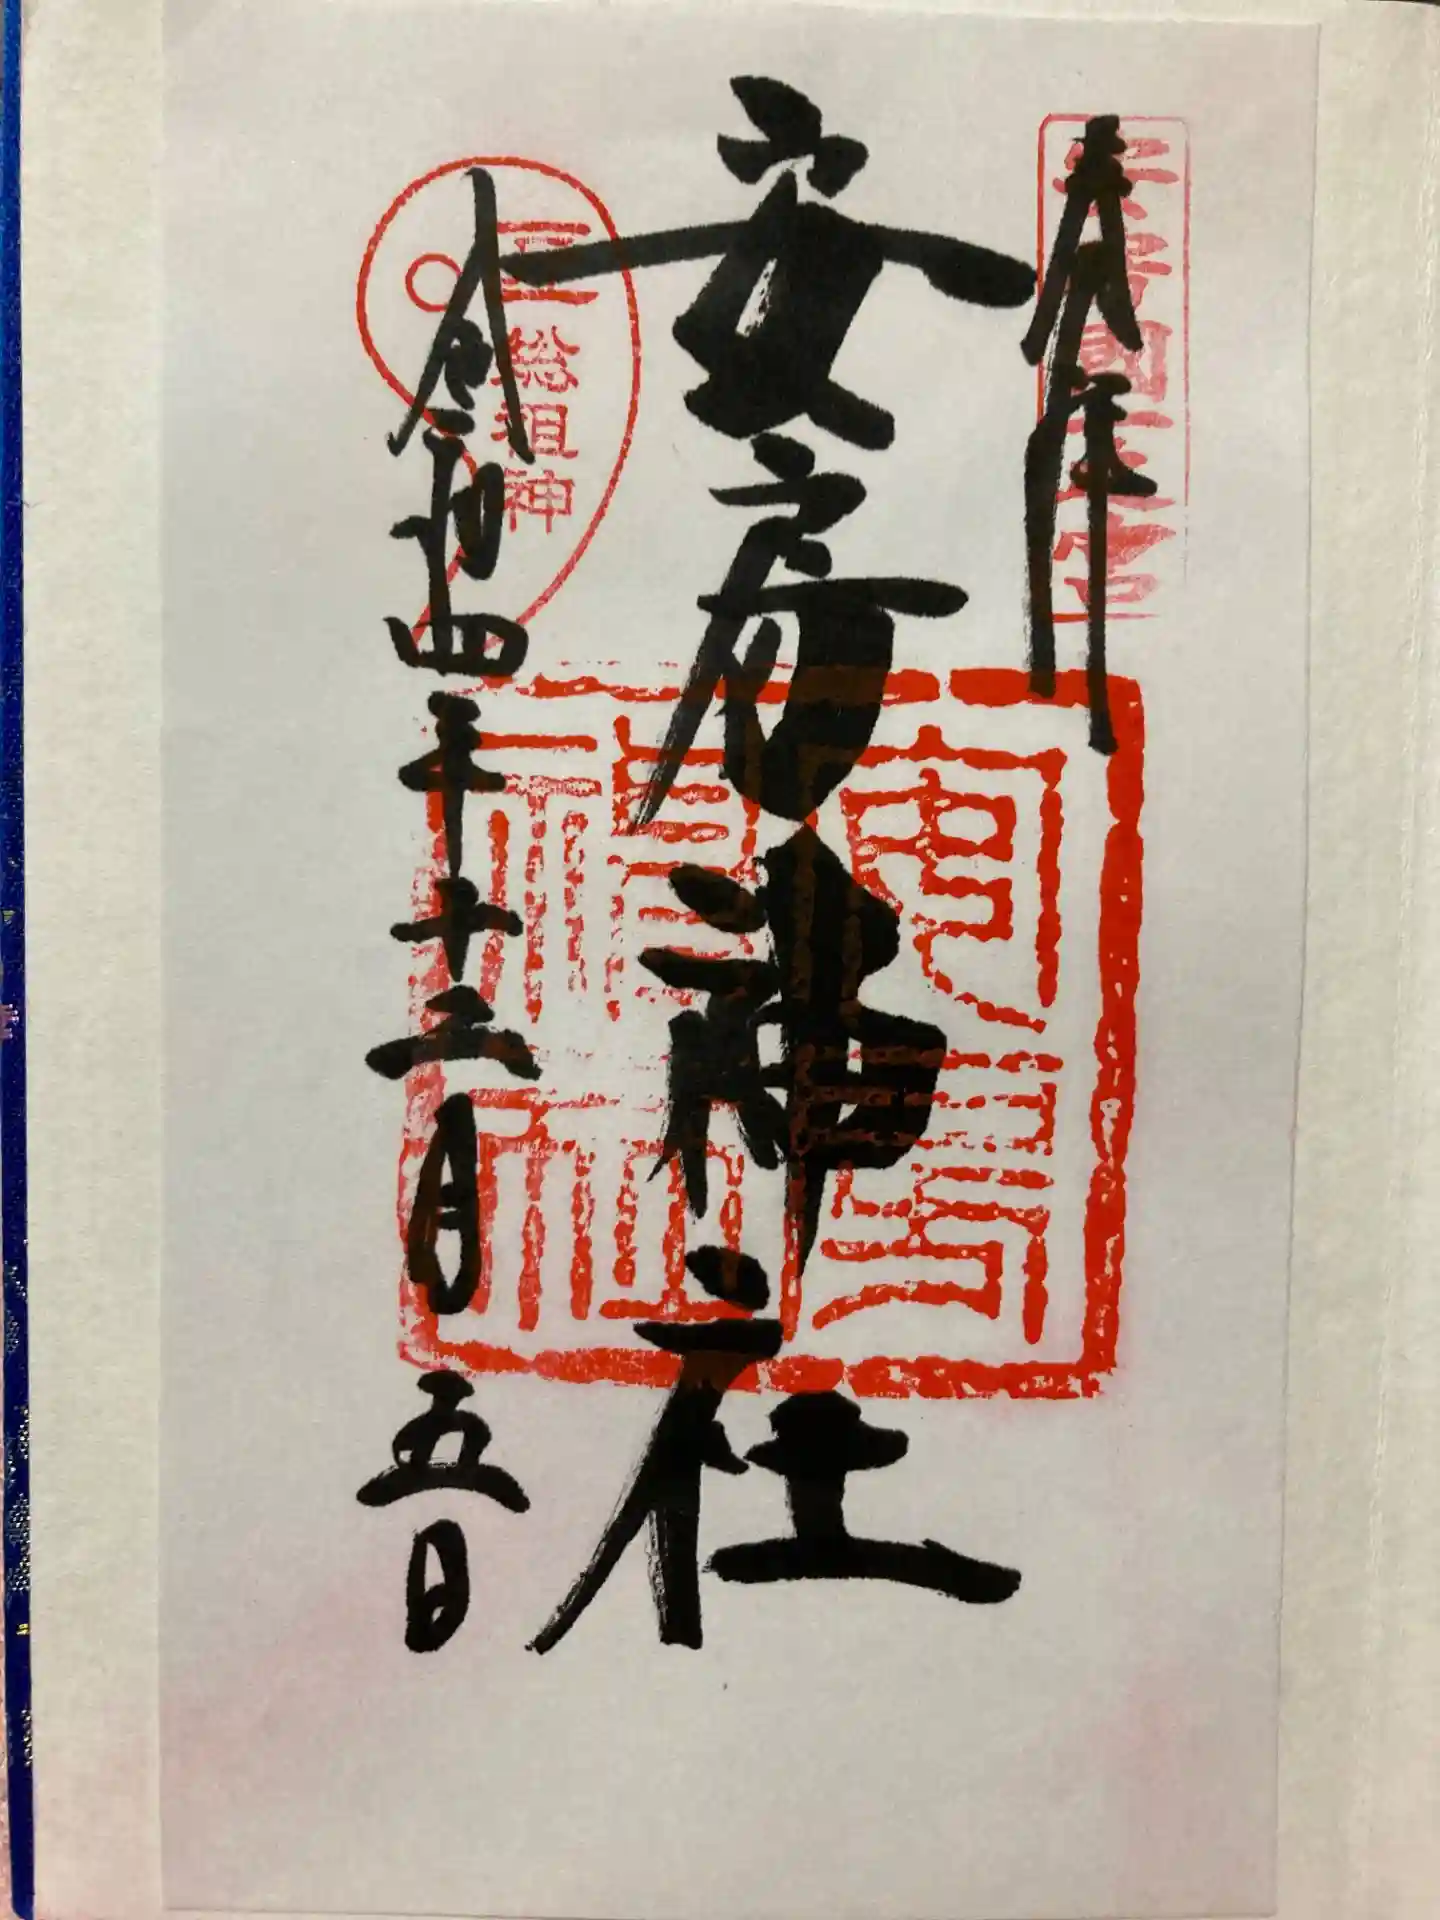 奉拝
安房國一之宮
安房神社
安房神社
日本三
総祖神
令和四年十二月五日